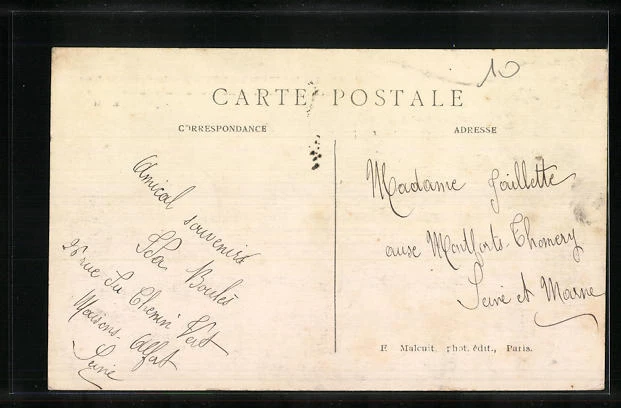 10
CARTE POSTALE
CORRESPONDANCE
ADRESSE
Amical souvenirs
Ida Boulés
26 rue Du Chemin Vert
Maisons-Alfort
Seine
Madame Gaillette
aux Montforts-Thomery
Seine et Marne
E. Malcuit, phot. édit., Paris.